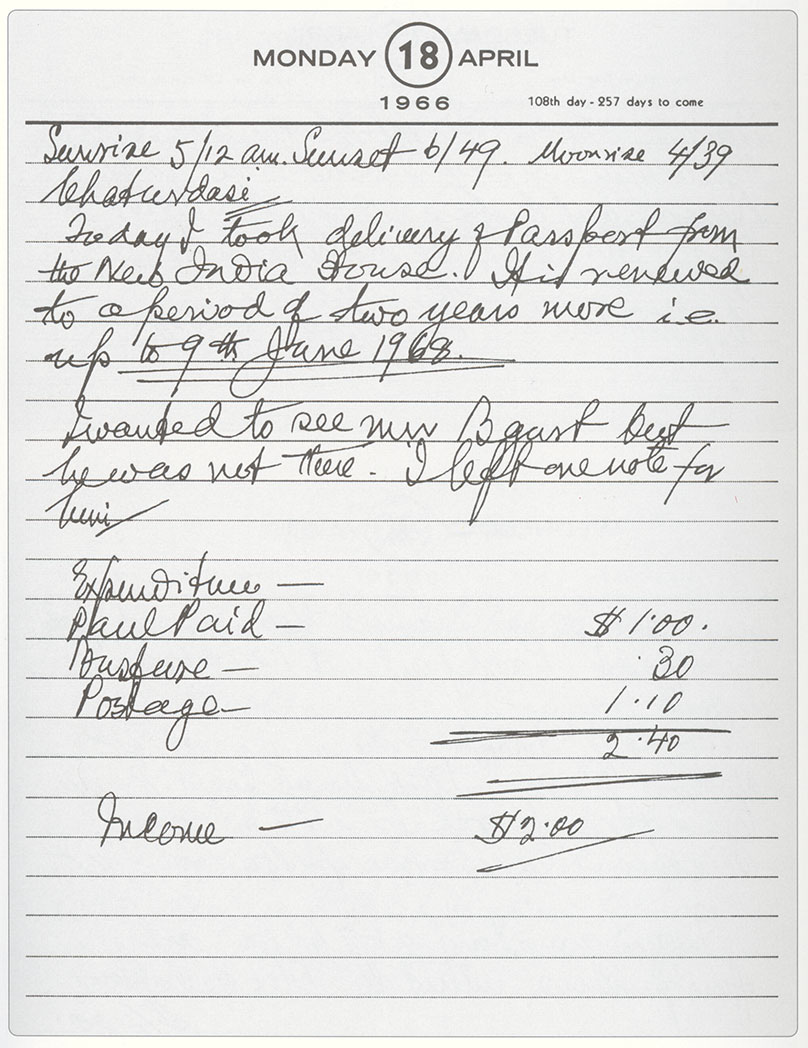 MONDAY 18 APRIL
1966 108th day - 257 days to come
Sunrise 5/12 am. Sunset 6/49. Moonrise 4/39
Chaturdasi
Today I took delivery of Passport from
the New India House. It is renewed
to a period of two years more i.e.
up to 9th June 1968.
I wanted to see Mr B but
he was not there. I left one note for
him
Expenditure —
Paul Paid — $1.00.
Busfare — .30
Postage — 1.10
2.40
Income — $2.00